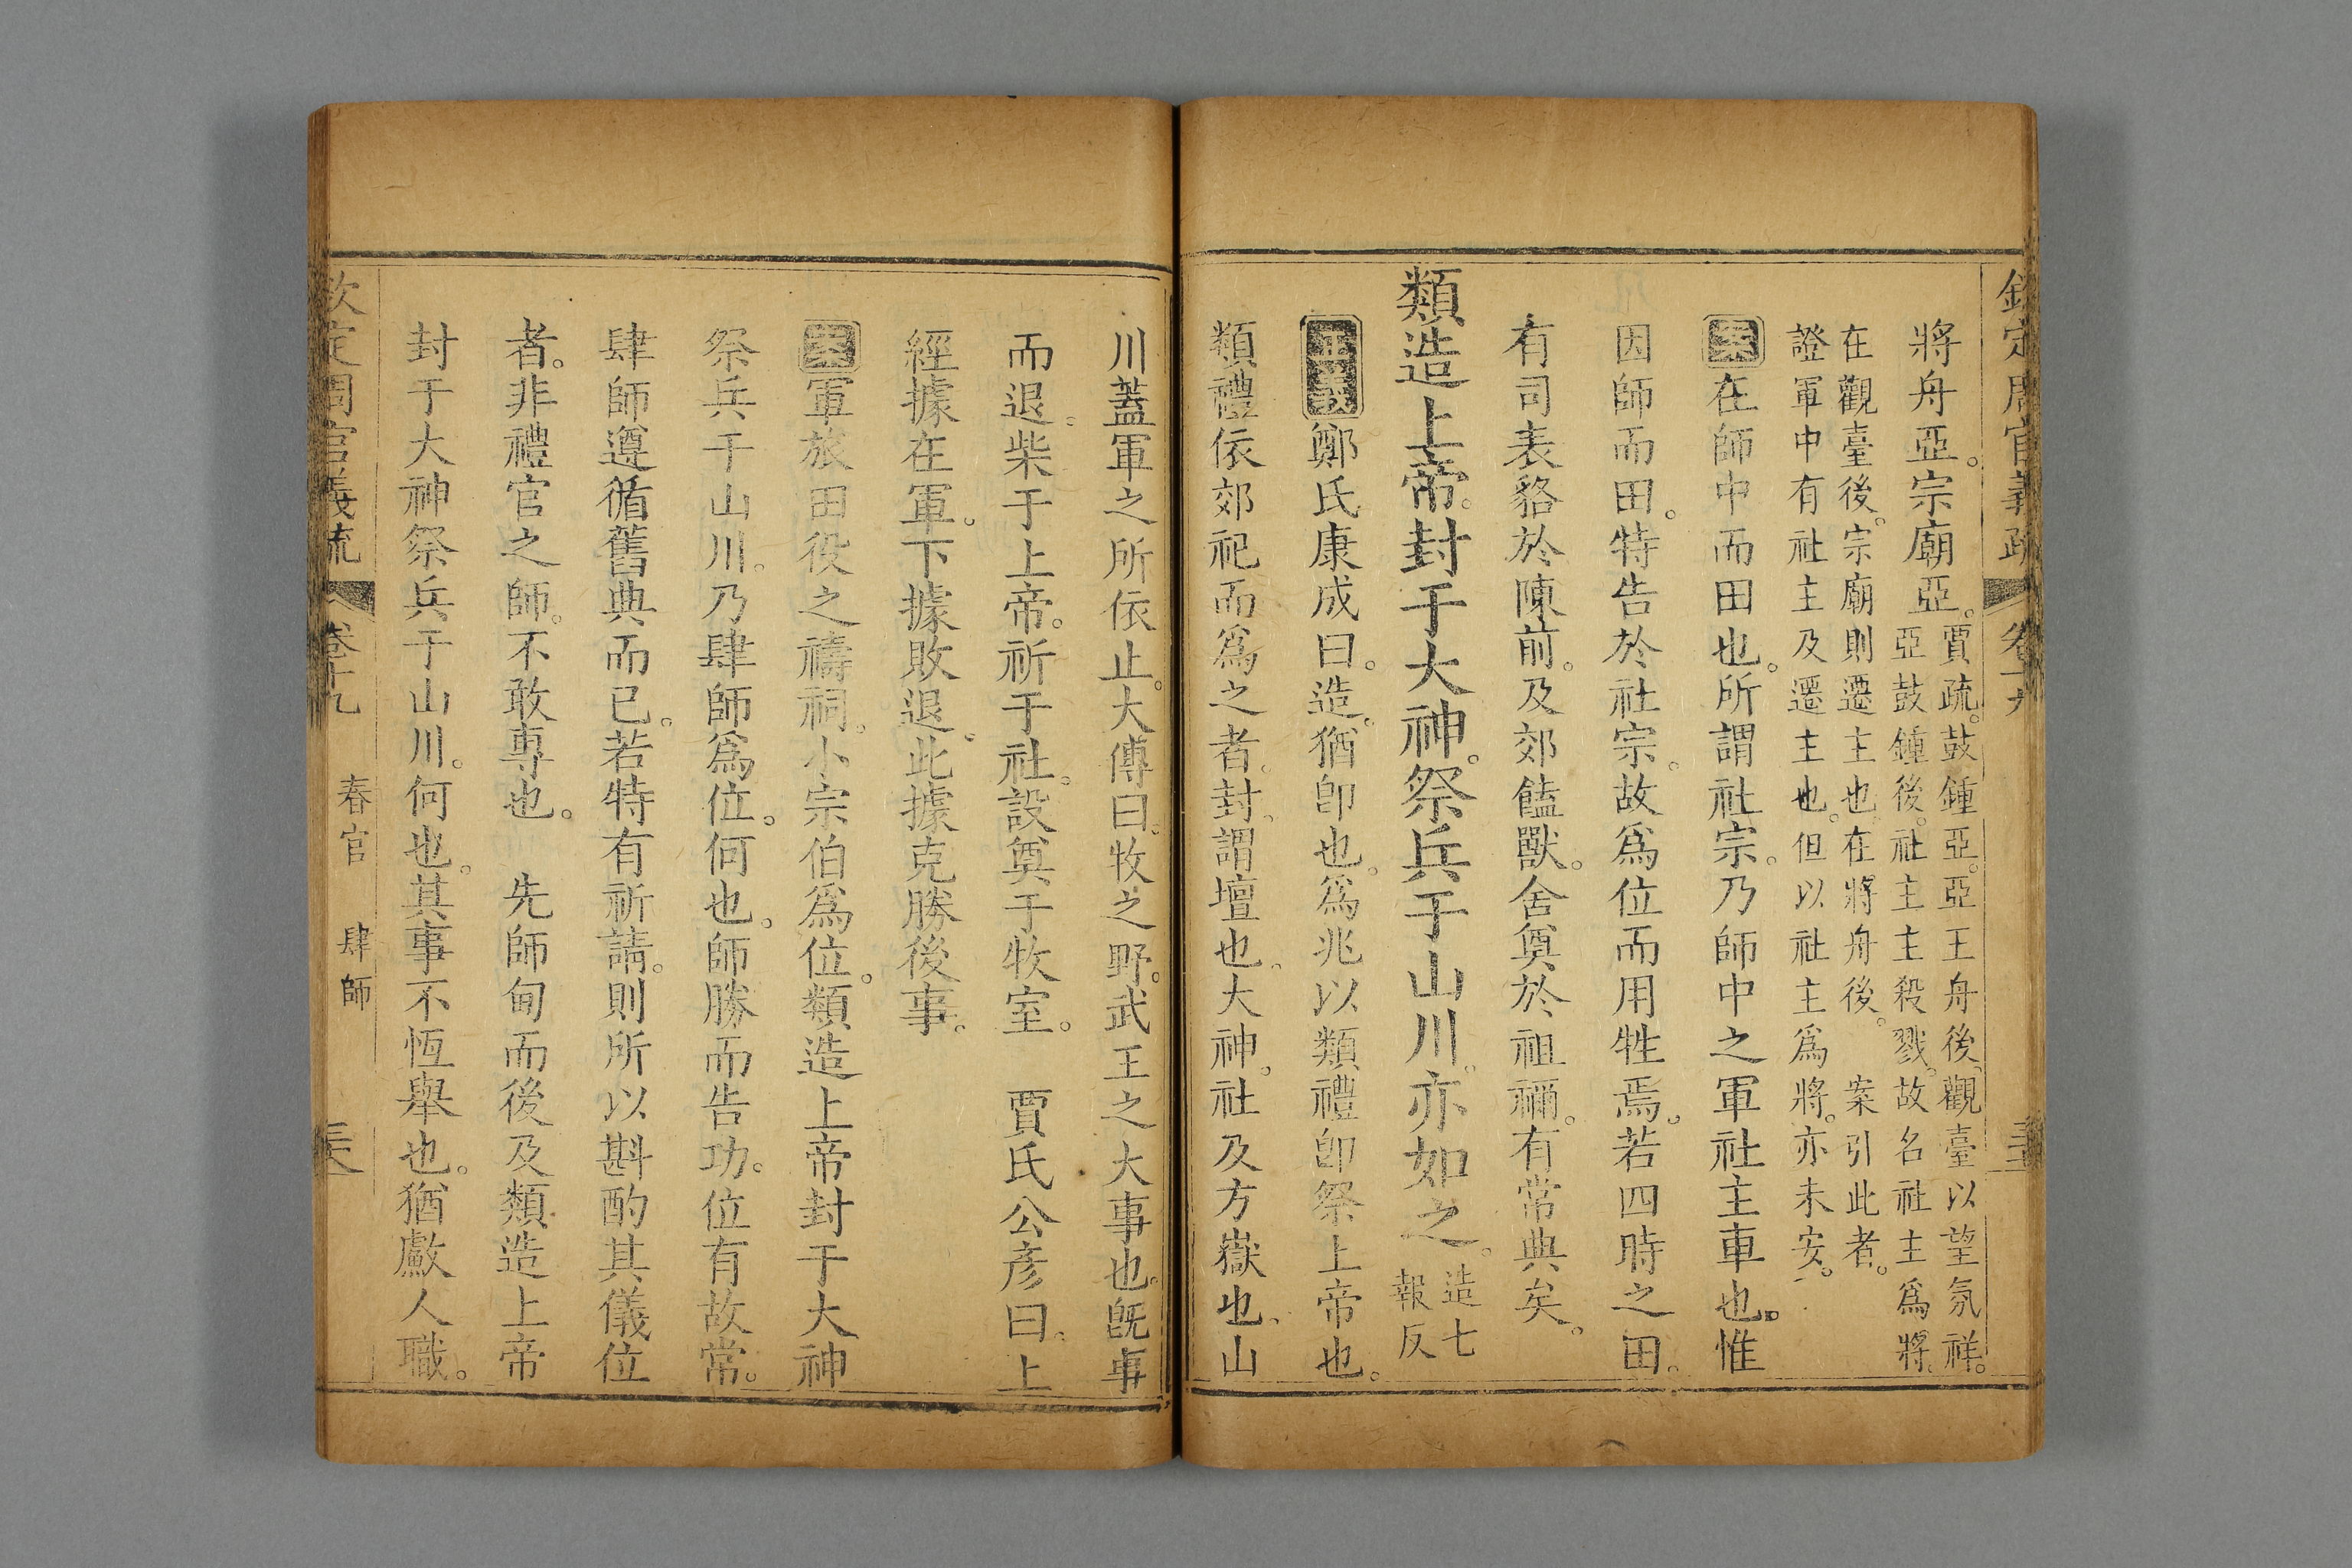 欽定周官義疏 卷十九
將舟亞。宗廟亞。賈疏。鼓鍾亞。亞王舟後、觀臺以望氛祥。
亞鼓鍾後。社主主殺戮。故名社主爲將。
在觀臺後。宗廟則遷主也。在將舟後。 案引此者。
證軍中有社主及遷主也。但以社主爲將。亦未安。
案在師中而田也。所謂社宗。乃師中之軍社主車也。惟
因師而田。特告於社宗。故爲位而用牲焉。若四時之田。
有司表貉於陳前。及郊饁獸。舍奠於祖禰。有常典矣。
類造上帝。封于大神。祭兵于山川。亦如之。造七
報反
正義鄭氏康成曰。造。猶卽也。爲兆以類禮卽祭上帝也。
類禮依郊祀而爲之者。封。謂壇也。大神。社及方嶽也。山
川蓋軍之所依止。大傳曰。牧之野。武王之大事也。旣事
而退。柴于上帝。祈于社。設奠于牧室。 賈氏公彥曰。上
經據在軍。下據敗退。此據克勝後事。
案軍旅田役之禱祠。小宗伯爲位。類造上帝封于大神
祭兵于山川。乃肆師爲位。何也。師勝而告功。位有故常。
肆師遵循舊典而已。若特有祈請。則所以斟酌其儀位
者。非禮官之師。不敢專也。 先師甸而後及類造上帝
封于大神祭兵于山川。何也。其事不恆舉也。猶𤅊人職。
欽定周官義疏 卷十九 春官 肆師